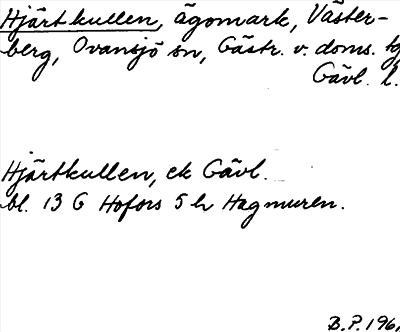 Hjärtkullen, ägomark, Väster-
berg, Ovansjö sn, Gästr. v. doms. tg
Gävl. l.
Hjärtkullen, ek Gävl.
bl. 13 G Hofors 5 h Hagmuren.
B.P. 196